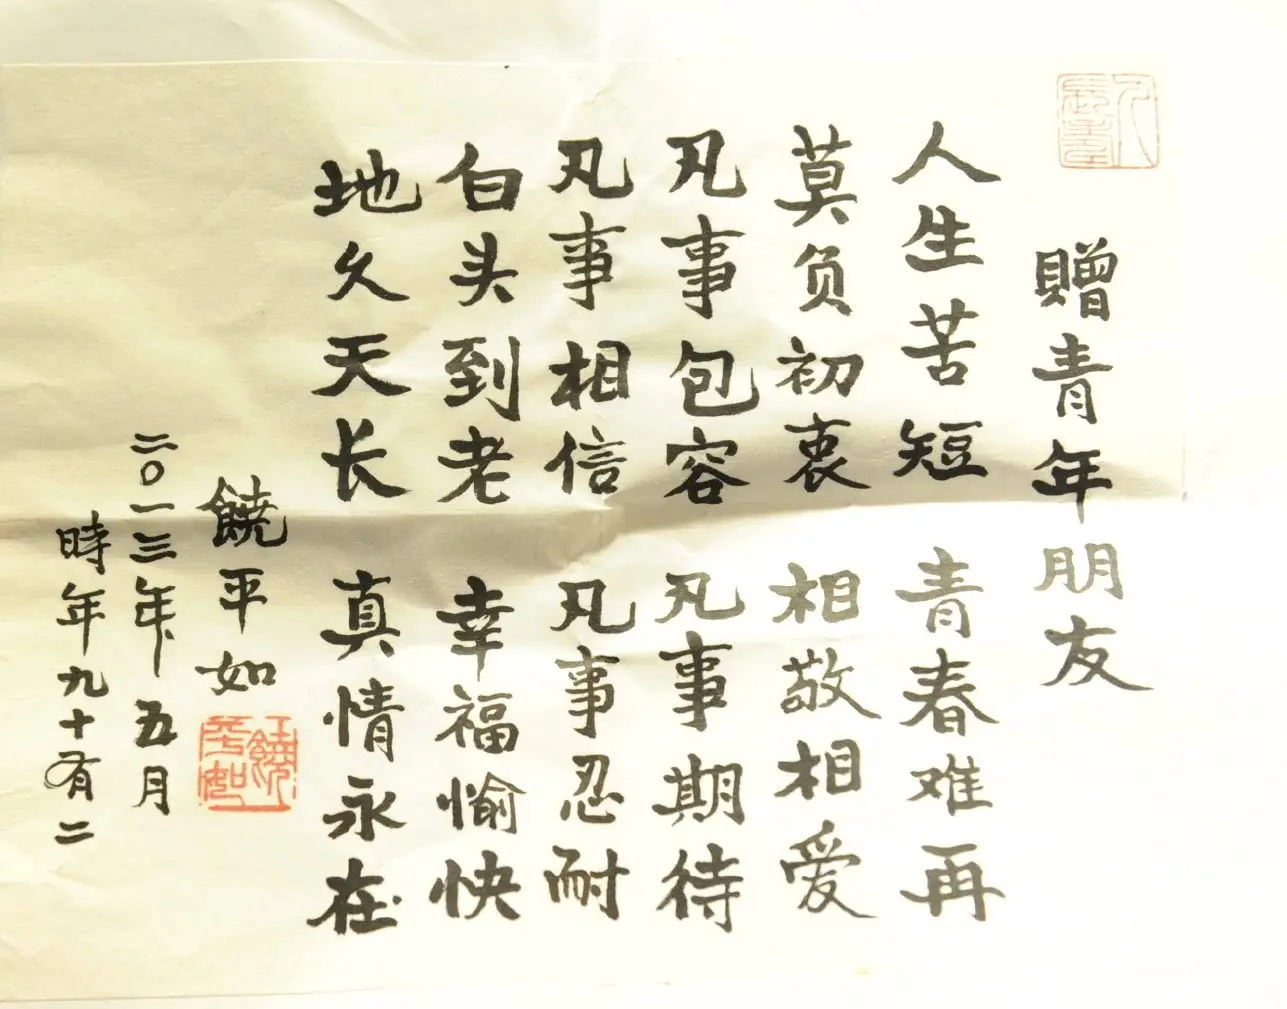 贈青年朋友
人生苦短 青春难再
莫负初衷 相敬相爱
凡事包容 凡事期待
凡事相信 凡事忍耐
白头到老 幸福愉快
地久天长 真情永在
饒平如
饒平如
二〇一三年五月
時年九十有二